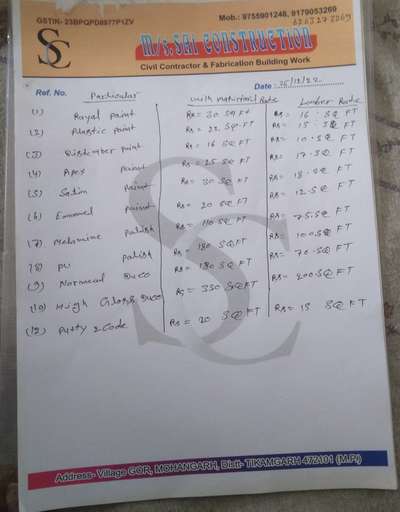 GSTIN- 23BPQPD8977P1ZV
Mob.: 9755901248, 9179053269
SC
M/s. SAI CONSTRUCTION
Civil Contractor & Fabrication Building Work
Ref. No.
Date
Particular
with matarial Rate
Lember Rate
(1) Rayal paint Rs = 30 SQ FT Rs = 16 SQ FT
(2) Plastic paint Rs = 22 SQ FT Rs = 15 SQ FT
(3) Distember paint Rs = 16 SQ FT Rs = 10 SQ FT
(4) Apex paint Rs = 25 SQ FT Rs = 17 SQ FT
(5) Satim paint Rs = 30 SQ FT Rs = 18 SQ FT
(6) Enamel paint Rs = 20 SQ FT Rs = 12 SQ FT
(7) Melamine Palish Rs = 110 SQ FT Rs = 75 SQ FT
(8) PU Palish Rs = 180 SQ FT Rs = 100 SQ FT
(9) Normal Duco Rs = 180 SQ FT Rs = 70 SQ FT
(10) High Gloss Duco Rs = 330 SQ FT Rs = 200 SQ FT
(12) Putty 2 Code Rs = 20 SQ FT Rs = 15 SQ FT
SC
Address- Village GOR, MOHANGARH, Distt- TIKAMGARH 472101 (M.P.)